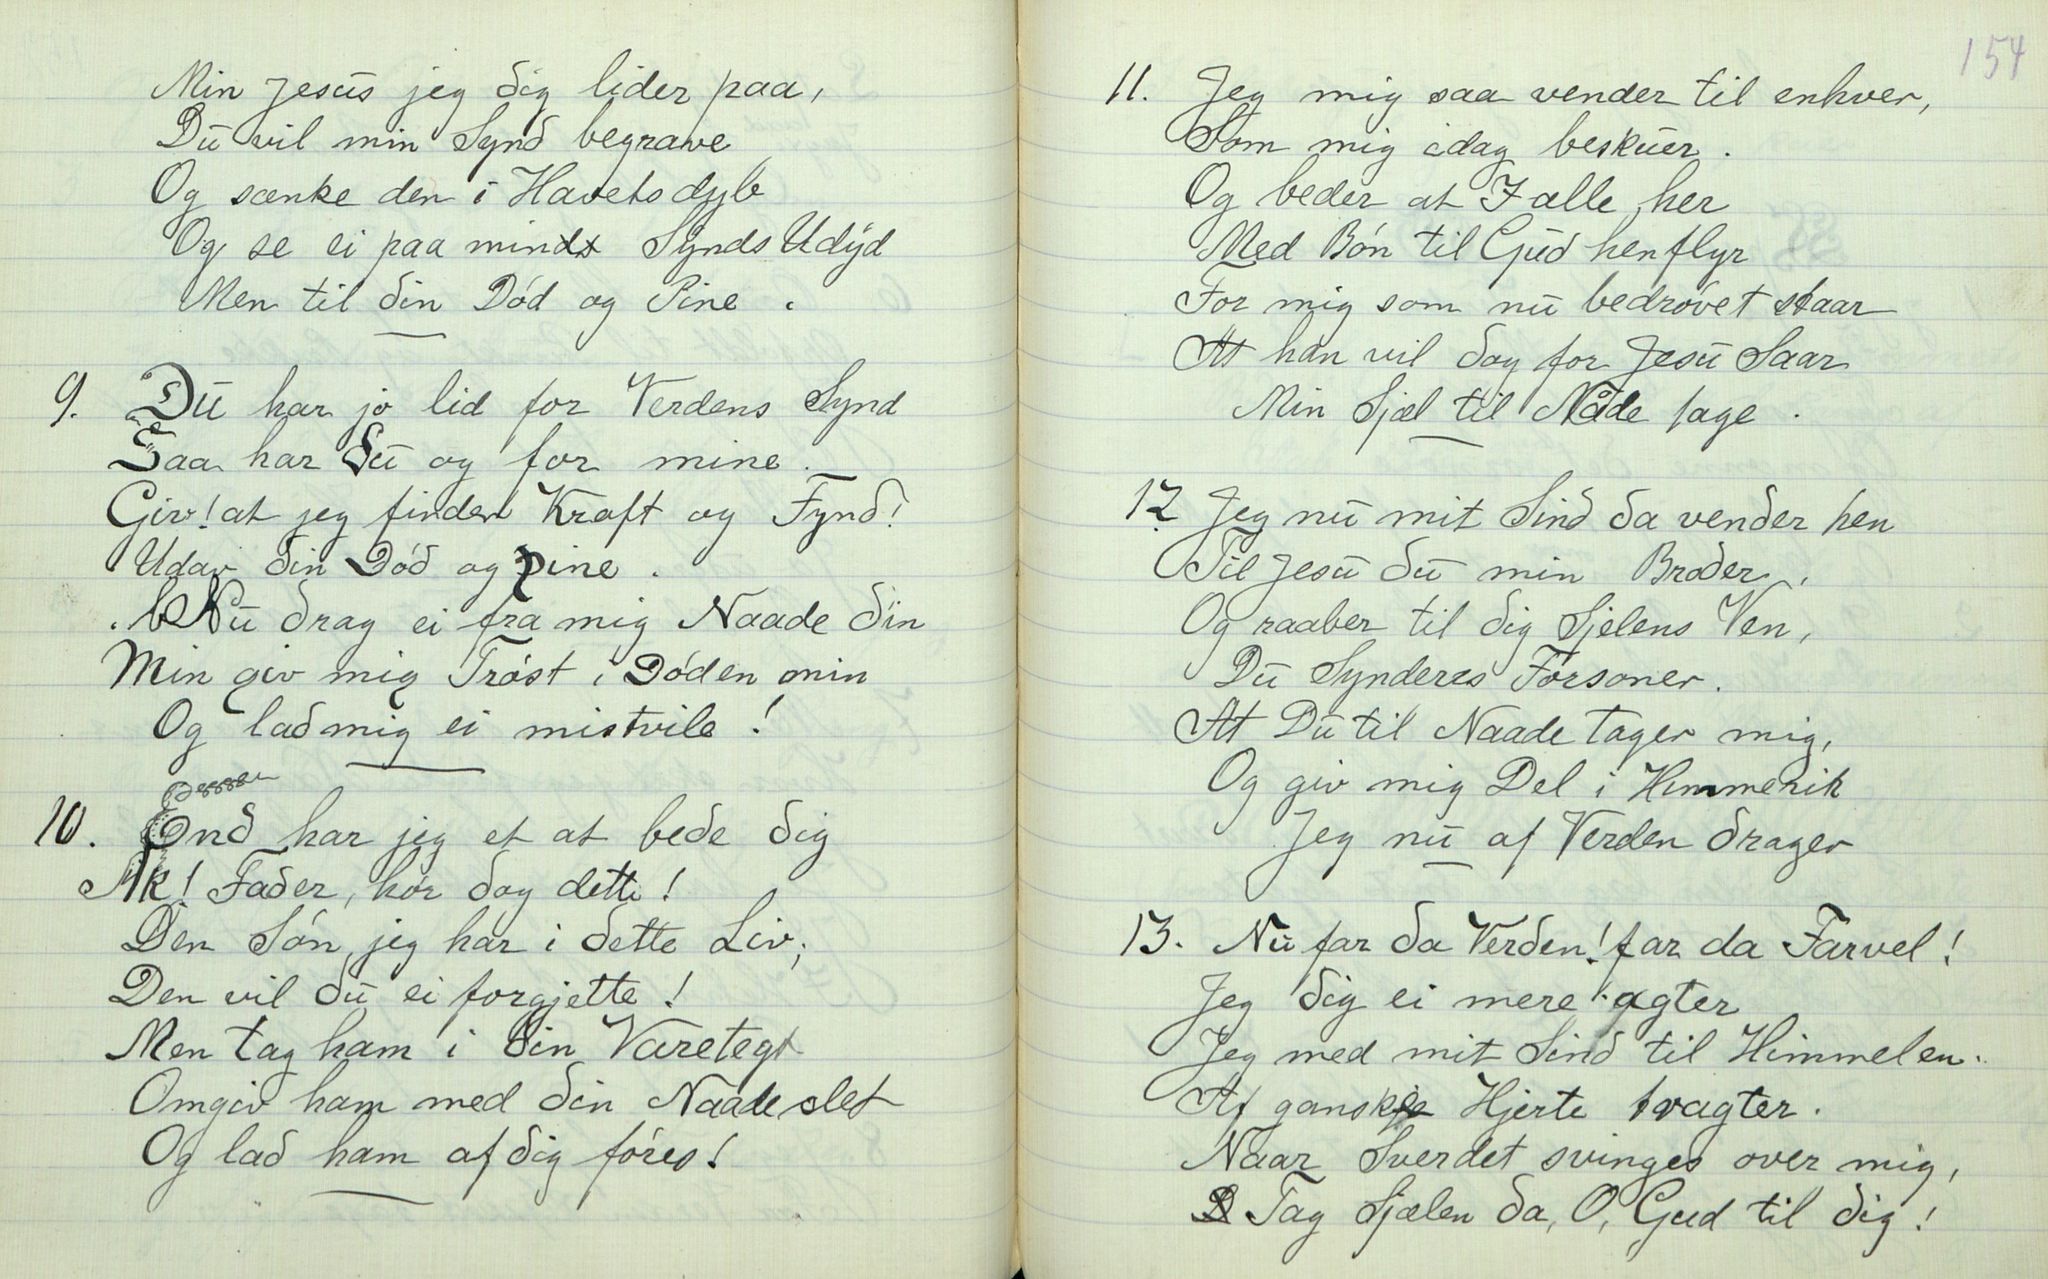 Min Jesus jeg dig lider paa,
Du vil min Synd begrave
Og sænke den i Havets dyb
Og se ei paa min Synds Udyd
Men til din Död og Pine.
9. Du har jo lid for Verdens Synd
Saa har du og for mine.
Giv! at jeg finder Kraft og Fynd!
Udav din Död og pine.
Nu drag ei fra mig Naade din
Min giv mig Tröst i Döden min
Og lad mig ei mistvile!
10. End har jeg et at bede dig
Ak! Fader, hör dog dette!
Den Sön, jeg har i dette Liv;
Den vil du ei forgjette!
Men tag ham i din Varetegt
Omgiv ham med din Naade slet
Og lad ham af dig föres!
154
11. Jeg mig saa vender til enhver,
Som mig idag beskuer.
Og beder at I alle her
Med Bön til Gud henflyr
For mig som nu bedrövet staar
At han vil dog for Jesu Saar
Min Sjæl til Nåde tage.
12. Jeg nu mit Sind da vender hen
Til Jesu du min Broder,
Og raaber til dig Sjelens Ven,
Du Synderes Forsoner.
At Du til Naade tager mig,
Og giv mig Del i Himmerik
Jeg nu af Verden drager
13. Nu far da Verden! far da Farvel!
Jeg dig ei mere agter
Jeg med mit Sind til Himmelen.
Af ganske Hjerte tragter.
Naar Sverdet svinges over mig,
Tag Sjælen da, O, Gud til dig!